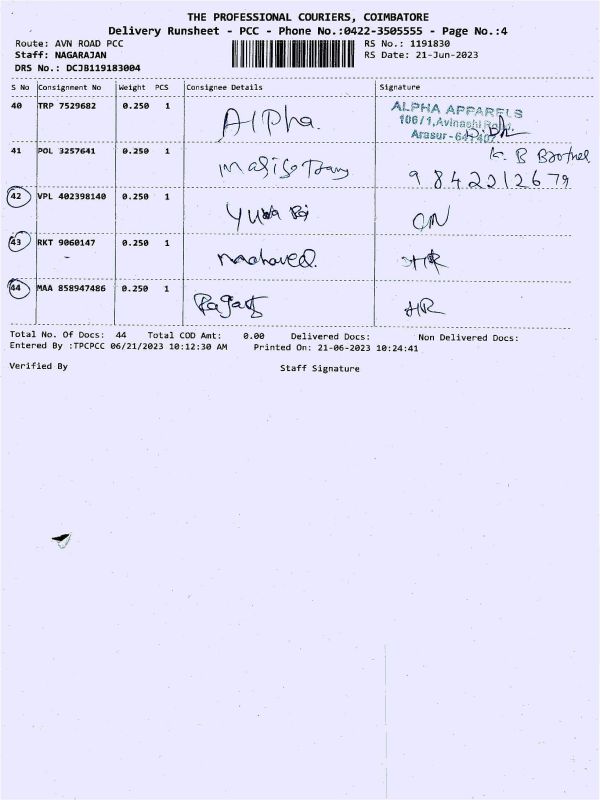 THE PROFESSIONAL COURIERS, COIMBATORE
Delivery Runsheet - PCC - Phone No.:0422-3505555 - Page No.:4
Route: AVN ROAD PCC RS No.: 1191830
Staff: NAGARAJAN RS Date: 21-Jun-2023
DRS No.: DCJB119183004
S No Consignment No Weight PCS Consignee Details Signature
40 TRP 7529682 0.250 1 Alpha. ALPHA APPARELS
106/1, Avinashi Road,
Arasur - 641 407.
41 POL 3257641 0.250 1 K. B Brother
9842212679
42 VPL 402398140 0.250 1
43 RKT 9060147 0.250 1
44 MAA 858947486 0.250 1
Total No. Of Docs: 44 Total COD Amt: 0.00 Delivered Docs: Non Delivered Docs:
Entered By :TPCPCC 06/21/2023 10:12:30 AM Printed On: 21-06-2023 10:24:41
Verified By Staff Signature